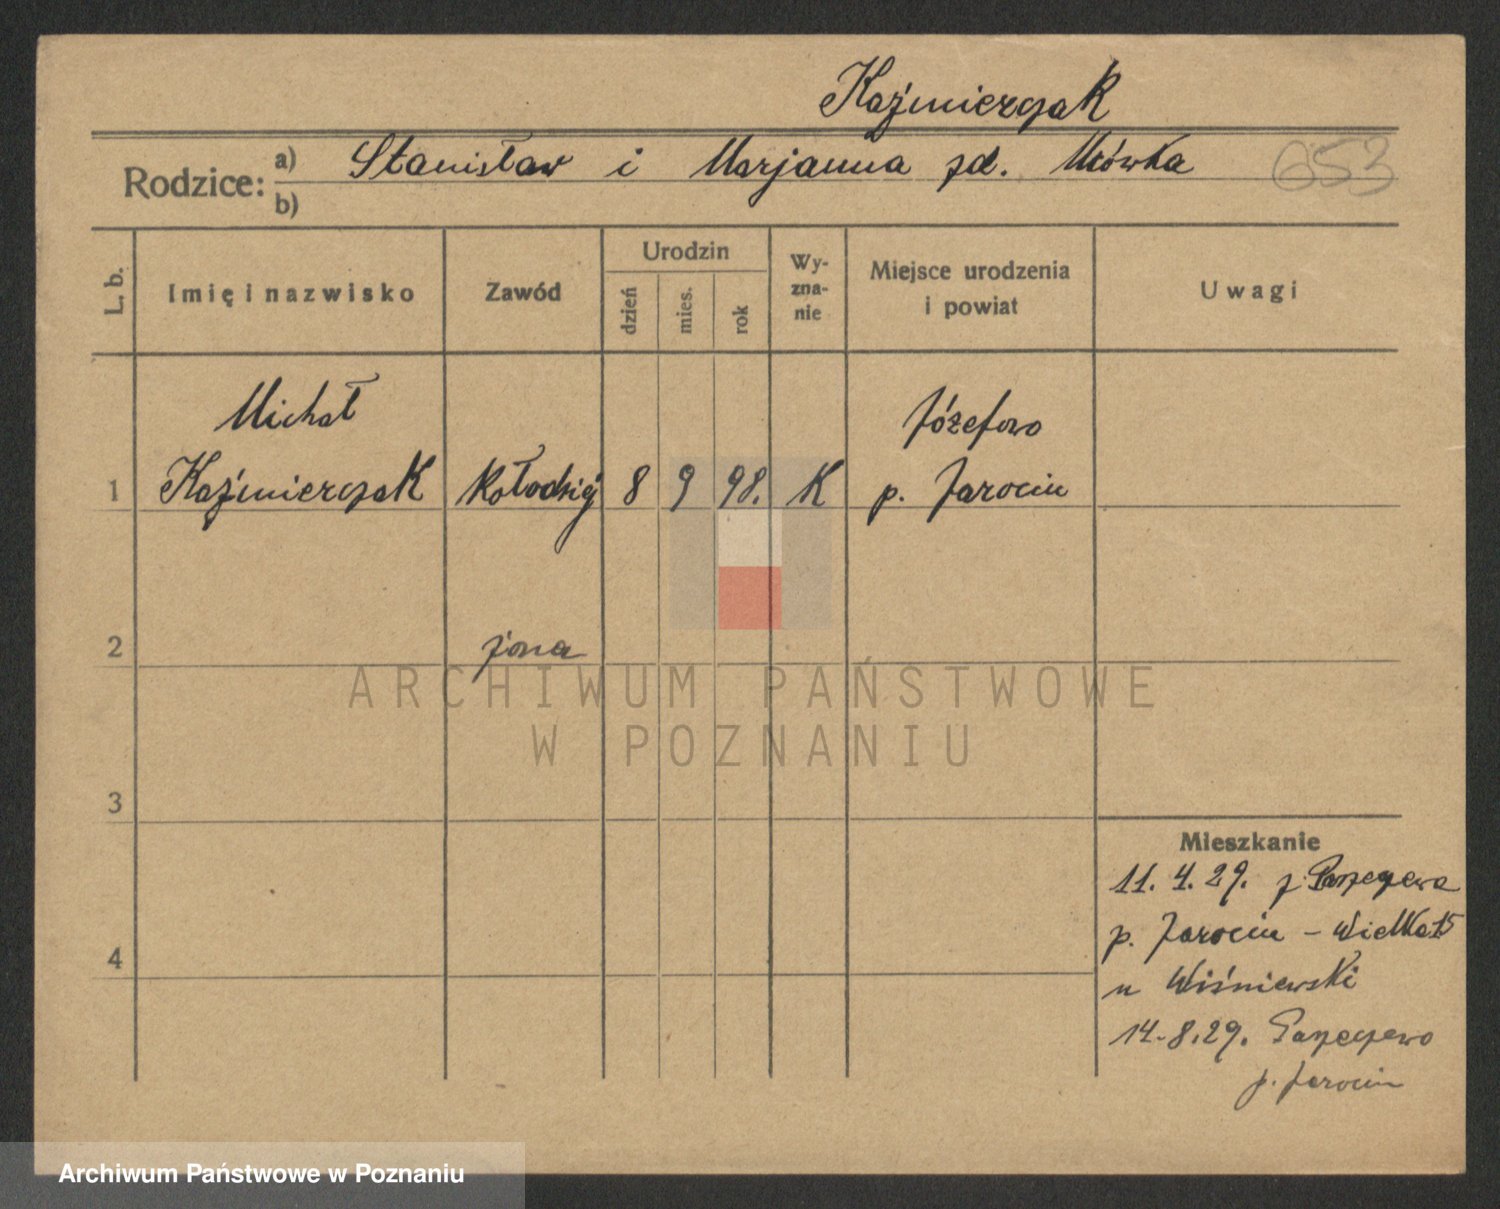 Kaźmierczak
Rodzice: a) Stanisław i Marjanna zd. Mrówka 653
b)
L. b. Imię i nazwisko Zawód Urodzin dzień mies. rok Wyznanie Miejsce urodzenia i powiat Uwagi
Michał Józefowo
1 Kaźmierczak Kołodziej 8 9 98. K p. Jarocin
2 żona
ARCHIWUM PAŃSTWOWE
W POZNANIU
3
Mieszkanie
11. 4. 29. z
p. Jarocin - Wielka 15
4
u Wiśniewski
14-8.29.
p. Jarocin
Archiwum Państwowe w Poznaniu